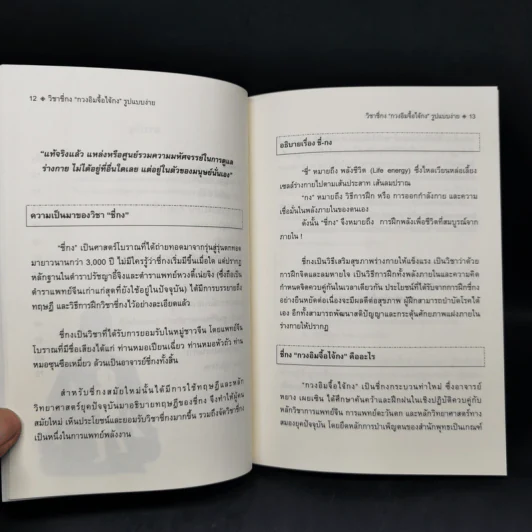 12 ◆ วิชาชี่กง "กวงอิมจื้อไจ้กง" รูปแบบง่าย
"แท้จริงแล้ว แหล่งหรือศูนย์รวมความมหัศจรรย์ในการดูแล
ร่างกาย ไม่ได้อยู่ที่อื่นใดเลย แต่อยู่ในตัวของมนุษย์นั่นเอง"
ความเป็นมาของวิชา "ชี่กง"
"ชี่กง" เป็นศาสตร์โบราณที่ได้ถ่ายทอดมาจากรุ่นสู่รุ่นตกทอด
มายาวนานกว่า 3,000 ปี ไม่มีใครรู้ว่าชี่กงเริ่มขึ้นเมื่อใด แต่ปรากฏ
หลักฐานในตำราปรัชญาอี้จิงและตำราแพทย์หวงตี้เน่ยจิง (ซึ่งถือเป็น
ตำราแพทย์จีนเก่าแก่สุดที่ยังใช้อยู่ในปัจจุบัน) ได้มีการบรรยายถึง
ทฤษฎี และวิธีการฝึกวิชาชี่กงไว้อย่างละเอียดแล้ว
ชี่กงเป็นวิชาที่ได้รับการยอมรับในหมู่ชาวจีน โดยแพทย์จีน
โบราณที่มีชื่อเสียงได้แก่ ท่านหมอเปียนเฉี่ยว ท่านหมอหัวถัว ท่าน
หมอซุนซือเหมี่ยว ล้วนเป็นอาจารย์ชี่กงทั้งสิ้น
สำหรับชี่กงสมัยใหม่นั้นได้มีการใช้ทฤษฎีและหลัก
วิทยาศาสตร์ยุคปัจจุบันมาอธิบายทฤษฎีของชี่กง จึงทำให้ผู้คน
สมัยใหม่ เห็นประโยชน์และยอมรับวิชาชี่กงมากขึ้น รวมถึงจัดวิชาชี่กง
เป็นหนึ่งในการแพทย์พลังงาน
วิชาชี่กง "กวงอิมจื้อไจ้กง" รูปแบบง่าย ◆ 13
อธิบายเรื่อง ชี่-กง
"ชี่" หมายถึง พลังชีวิต (Life energy) ซึ่งไหลเวียนหล่อเลี้ยง
เซลล์ร่างกายไปตามเส้นประสาท เส้นลมปราณ
"กง" หมายถึง วิธีการฝึก หรือ การออกกำลังกาย และความ
เชื่อมั่นในพลังภายในของตนเอง
ดังนั้น "ชี่กง" จึงหมายถึง การฝึกพลังเพื่อชีวิตที่สมบูรณ์จาก
ภายใน !
ชี่กงเป็นวิธีเสริมสุขภาพร่างกายให้แข็งแรง เป็นวิชาว่าด้วย
การฝึกจิตและลมหายใจ เป็นวิธีการฝึกทั้งพลังภายในและความคิด
กำหนดจิตควบคู่กันในเวลาเดียวกัน ประโยชน์ที่ได้รับจากการฝึกชี่กง
อย่างยืนหยัดต่อเนื่องจะมีผลดีต่อสุขภาพ ผู้ฝึกสามารถบำบัดโรคได้
เอง อีกทั้งสามารถพัฒนาสติปัญญาและกระตุ้นศักยภาพแฝงภายใน
ร่างกายให้ปรากฏ
ชี่กง "กวงอิมจื้อไจ้กง" คืออะไร
"กวงอิมจื้อไจ้กง" เป็นชี่กงกระบวนท่าใหม่ ซึ่งอาจารย์
หยาง เผยเซิน ได้ศึกษาค้นคว้าและฝึกฝนในเชิงปฏิบัติควบคู่กับ
หลักวิชาการแพทย์จีน การแพทย์ตะวันตก และหลักวิทยาศาสตร์ทาง
สมองยุคปัจจุบัน โดยยึดหลักการบำเพ็ญตนของสำนักพุทธเป็นเกณฑ์